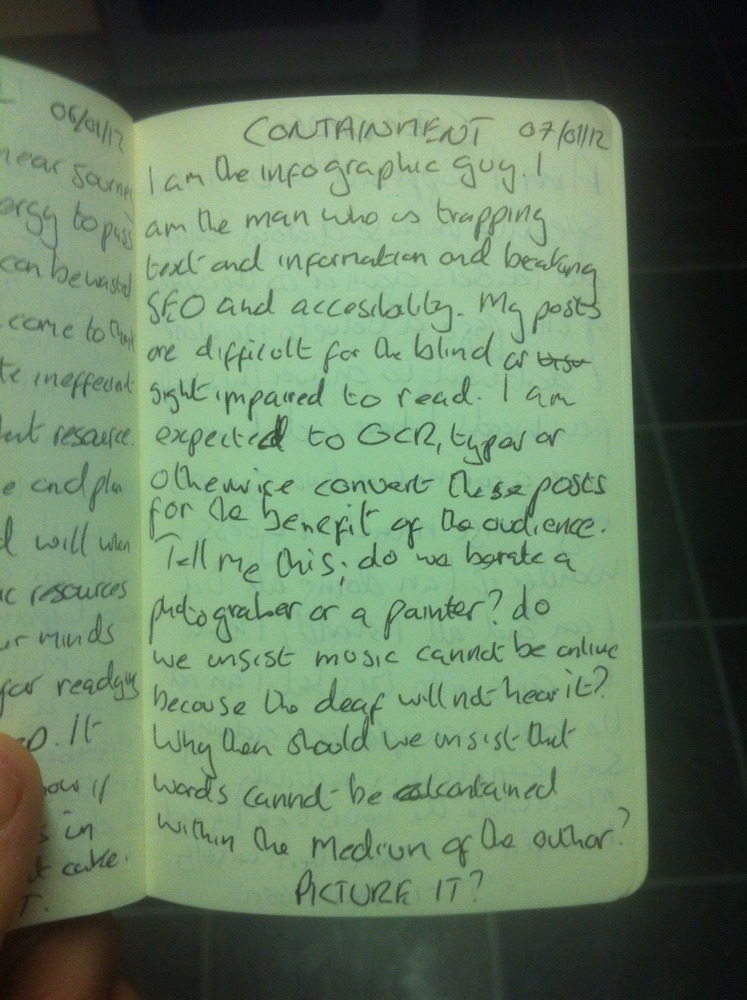 06/01/12
near journey
ergy to pass
can be wasted
come to think
te inefficient
resource.
e and plan
d will when
ic resources
ur minds
for reading
It
now if
s in
t cake.
T.
CONTAINMENT 07/01/12
I am the infographic guy. I
am the man who is trapping
text and information and beaking
SEO and accesibility. My posts
are difficult for the blind or
sight impaired to read. I am
expected to OCR, type or
otherwise convert these posts
for the benefit of the audience.
Tell me this; do we berate a
photograher or a painter? do
we insist music cannot be online
because the deaf will not hear it?
Why then should we insist that
words cannot be contained
within the medium of the author?
PICTURE IT?